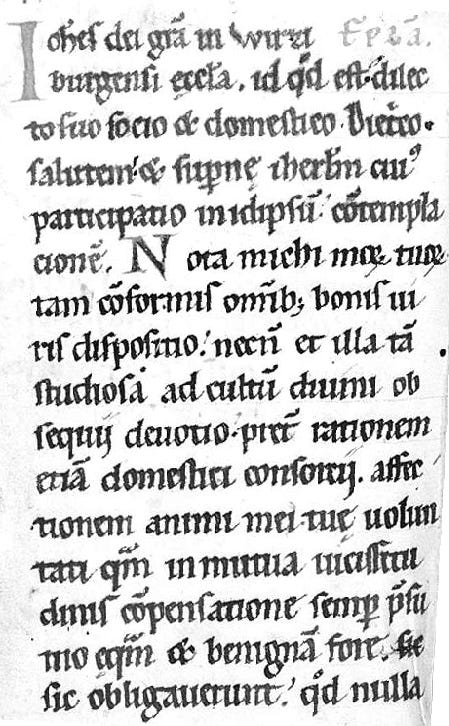 Ioh̄es dei gr̄a in Wirzi
burgensi eccl̄a. id qđ est. dilec
to suo socio & domestico Dieṫco.
salutem. & supnę ihērlm̄ cuiꝰ
participatio in idipsū. cōtempla
cionē. Nota michi moꝝ tuoꝝ
tam cōformis om̄ib; bonis ui
ris dispositio. necn̄ et illa tā
studiosa ad cultū diuini ob
sequij deuotio. pret̄ rationem
etiā domestici consorcij. affec
tionem animi mei tuę uolun
tati qm̄ in mutua uicissitu
dinis cōpensatione semꝑ p̄su
mo eqm̄ & benignā fore.
sic obligauerunt. qđ nulla